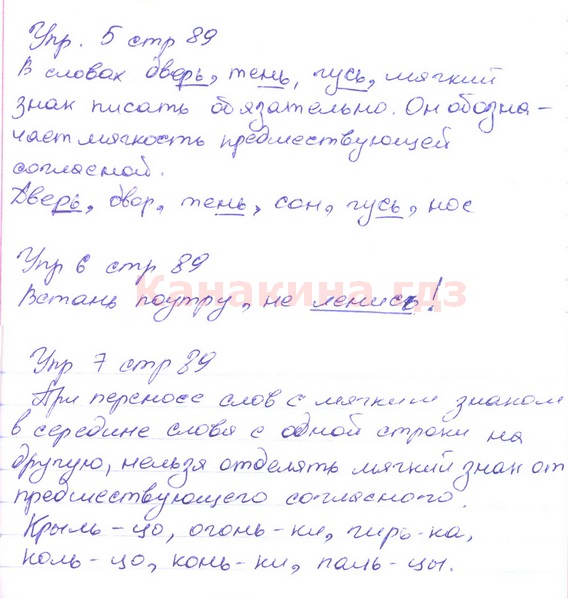 Упр. 5 стр 89
В словах дверь, тень, гусь, мягкий
знак писать обязательно. Он обозна-
чает мягкость предшествующей
согласной.
Дверь, двор, тень, сон, гусь, нос
Упр 6 стр 89
Канакина гдз
Встань поутру, не ленись!
Упр 7 стр 89
При переносе слов с мягким знаком
в середине слова с одной строки на
другую, нельзя отделять мягкий знак от
предшествующего согласного.
Крыль-цо, огонь-ки, гирь-ка,
коль-цо, конь-ки, паль-цы.